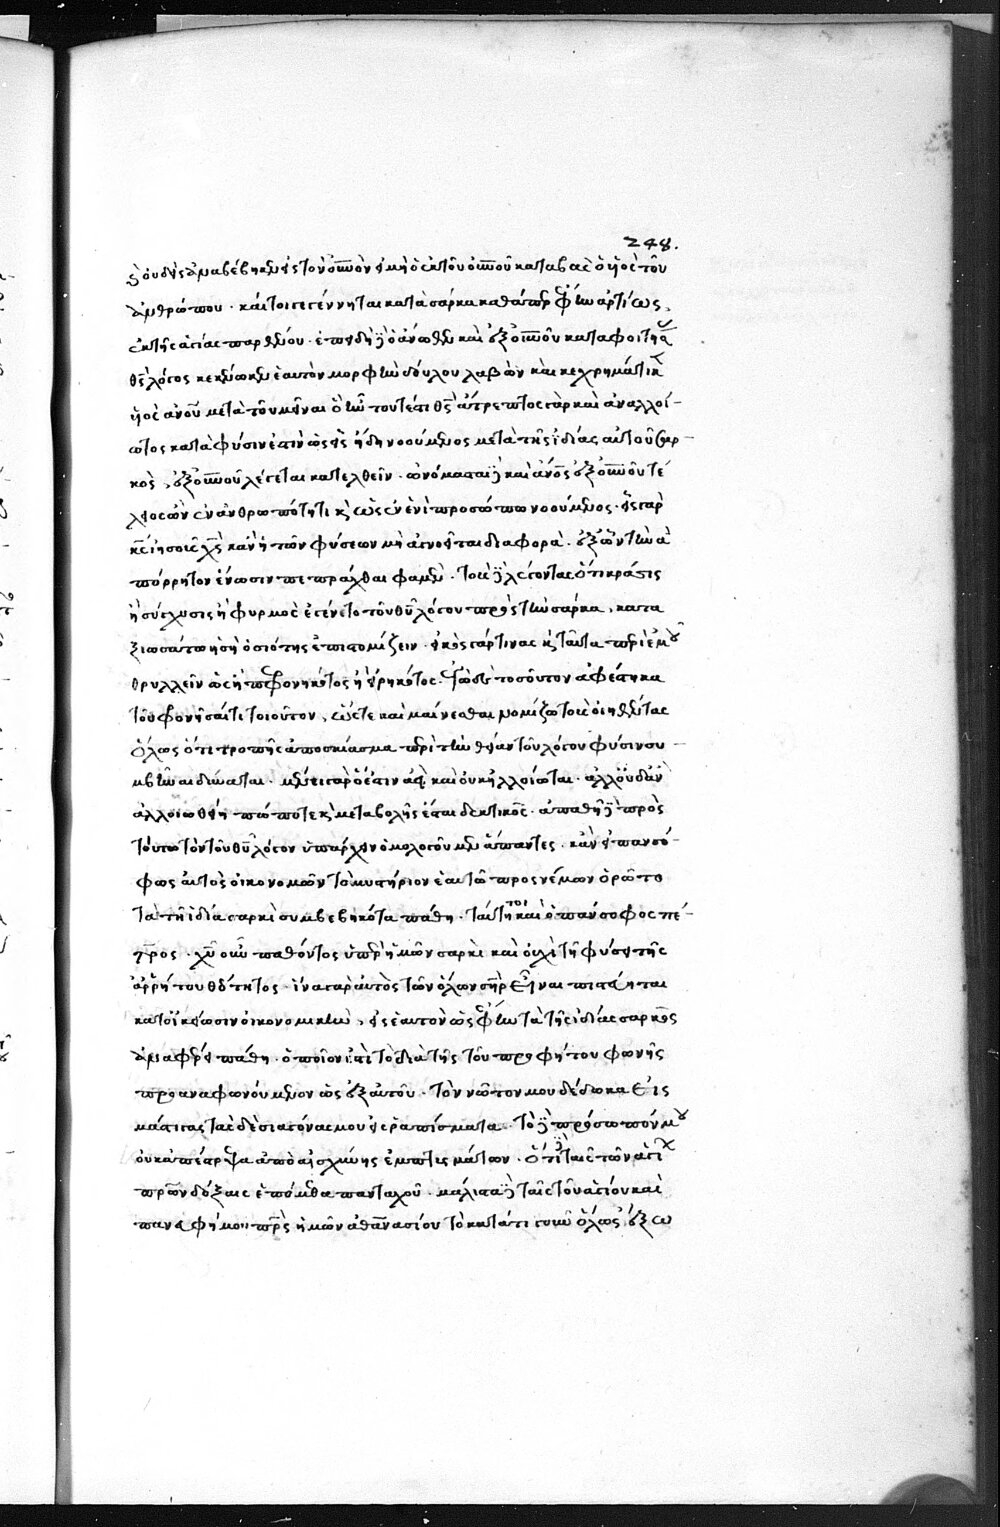 248.
ὁ οὐδεὶς ἀναβέβηκεν εἰς τὸν οὐνὸν εἰ μὴ ὁ ἐκ τοῦ οὐνοῦ καταβὰς ὁ ὑιὸς τοῦ
ἀνθρώπου. καίτοι γεγέννηται κατὰ σάρκα καθάπερ ἔφην ἀρτίως,
ἐκ τῆς ἁγίας παρθένου. ἐπειδὴ δὲ ὁ ἄνωθεν καὶ ἐξ οὐνοῦ καταφοιτήσας
θς λόγος κεκένωκεν ἑαυτὸν μορφὴν δούλου λαβὼν καὶ κεχρημάτικε
ὑιὸς ἀνου μετὰ τοῦ μεῖναι ὃ ἦν τουτέστι θς ἄτρεπτος γὰρ καὶ ἀναλλοί-
ωτος κατὰ φύσιν ἐστὶν ὡς εἷς ἤδη νοούμενος μετὰ τῆς ἰδίας αὐτοῦ σαρ-
κὸς, ἐξ οὐνοῦ λέγεται κατελθεῖν. ὠνόμασται δὲ καὶ ἀνος ἐξ οὐνοῦ τέ
λειος ὢν ἐν ἀνθρωπότητι κ ὡς ἐν ἑνὶ προσώπω νοούμενος. εἷς γὰρ
κς ἰησοῦς χς κἂν ἡ τῶν φύσεων μὴ ἀγνοεῖται διαφορὰ. ἐξ ὧν τὴν ἀ
πόρρητον ἕνωσιν πεπράχθαι φαμὲν. τοὺς δὲ λέγοντας ὅτι κράσις
ἢ σύγχυσις ἢ φυρμὸς ἐγένετο τοῦ θυ λόγου πρὸς τὴν σάρκα, κατα
ξιωσάτω ἡ σὴ ὁσιότης ἐπιστομίζειν. εἰκὸς γάρ τινας κ ταῦτα περὶ ἐμοῦ
θρυλλεῖν ὡς ἢ πεφρονηκότος ἢ εἰρηκότος. ἐγὼ δὲ τοσοῦτον ἀφέστηκα
τοῦ φρονῆσαί τι τοιοῦτον, ὥστε καὶ μαίνεσθαι νομίζω τοὺς οἰηθέντας
ὅλως ὅτι τροπῆς ἀποσκίασμα περὶ τὴν θείαν τοῦ λόγου φύσιν συ-
μβῆναι δύναται. μένει γὰρ ὅ ἐστιν ἀεὶ καὶ οὐκ ἠλλοίωται. ἀλλ' οὐδ' ἂν
ἀλλοιωθείη πώποτε κ μεταβολῆς ἔσται δεκτικὸς. ἀπαθῆ δὲ πρὸς
τούτω τὸν τοῦ θυ λόγον ὑπάρχειν ὁμολογοῦμεν ἅπαντες. κἂν εἰ πανσό-
φως αὐτὸς οἰκονομῶν τὸ μυστήριον ἑαυτῶ προσνέμων ὁρῶτο
τὰ τῆ ἰδία σαρκὶ συμβεβηκότα πάθη. ταύτητοι καὶ ὁ πάνσοφος πέ-
τρος. χυ οὖν παθόντος ὑπὲρ ἡμῶν σαρκὶ καὶ οὐχὶ τῆ φύσει τῆς
ἀρρήτου θεότητος. ἵνα γὰρ αὐτὸς τῶν ὅλων σὴρ εἶναι πιστεύηται
κατ' οἰκείωσιν οἰκονομικὴν, εἰς ἑαυτὸν ὡς ἔφην τὰ τῆς ἰδίας σαρκὸς
ἀναφέρει πάθη. ὁποῖόν ἐστι τὸ διὰ τῆς τοῦ προφήτου φωνῆς
προαναφωνούμενον ὡς ἐξ αὐτοῦ. τὸν νῶτον μου δέδωκα εἰς
μάστιγας τὰς δὲ σιαγόνας μου εἰς ῥαπίσματα. τὸ δὲ πρόσωπόν μου
οὐκ ἀπέστρεψα ἀπὸ αἰσχύνης ἐμπτυσμάτων. ὅτι δὲ ταῖς τῶν ἁγίων
πρων δόξαις ἑπόμεθα πανταχοῦ. μάλιστα δὲ ταῖς τοῦ ἁγίου καὶ
πανευφήμου πρς ἡμῶν ἀθανασίου τὸ κατά τι γοῦν ὅλως ἔξω